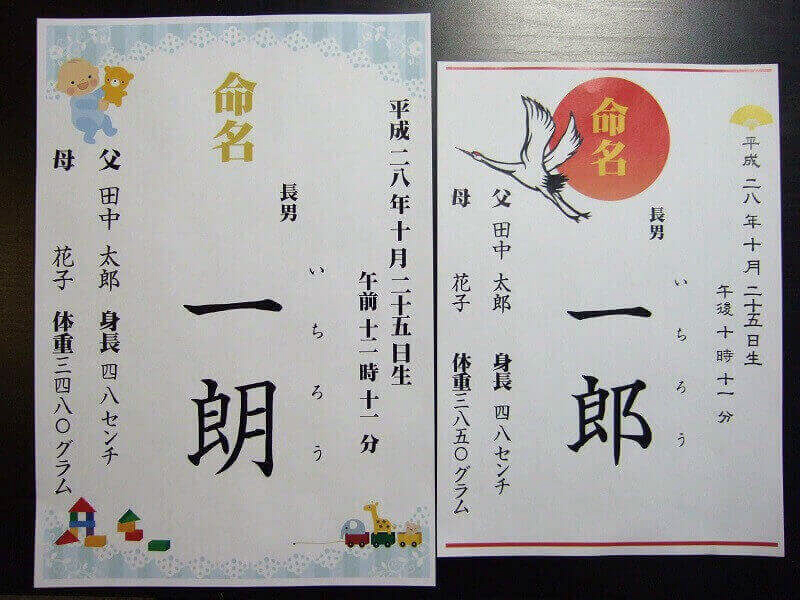 命名
平成二八年十月二十五日生
午前十二時十一分
長男
いちろう
一朗
父 田中 太郎 身長 四八センチ
母 花子 体重三四八〇グラム
命名
平成二八年十月二十五日生
午後十時十一分
長男
いちろう
一郎
父 田中 太郎 身長 四八センチ
母 花子 体重三八五〇グラム